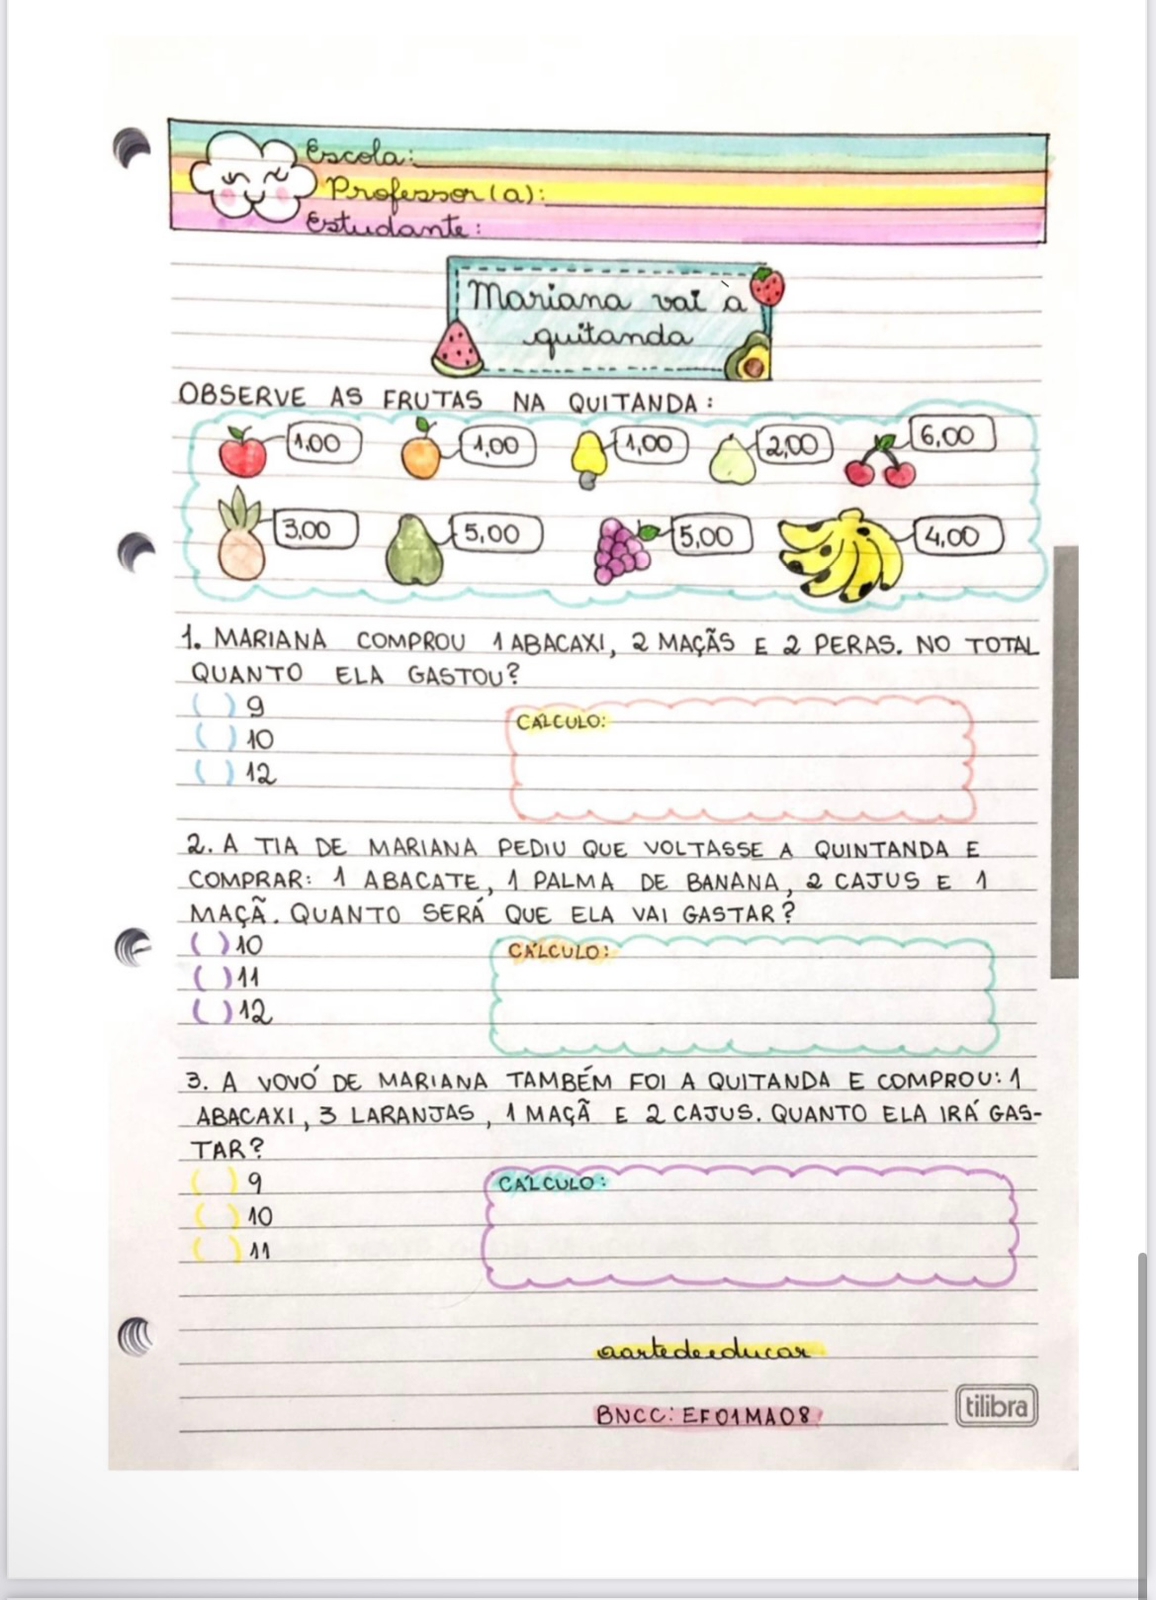 Escola:
Professor(a):
Estudante:
Mariana vai à
quitanda
OBSERVE AS FRUTAS NA QUITANDA:
1,00 1,00 1,00 2,00 6,00
3,00 5,00 5,00 4,00
1. MARIANA COMPROU 1 ABACAXI, 2 MAÇÃS E 2 PERAS. NO TOTAL
QUANTO ELA GASTOU?
( ) 9
( ) 10
( ) 12
CÁLCULO:
2. A TIA DE MARIANA PEDIU QUE VOLTASSE A QUINTANDA E
COMPRAR: 1 ABACATE, 1 PALMA DE BANANA, 2 CAJUS E 1
MAÇÃ. QUANTO SERÁ QUE ELA VAI GASTAR?
( ) 10
( ) 11
( ) 12
CÁLCULO:
3. A VOVÓ DE MARIANA TAMBÉM FOI A QUITANDA E COMPROU: 1
ABACAXI, 3 LARANJAS, 1 MAÇÃ E 2 CAJUS. QUANTO ELA IRÁ GAS-
TAR?
( ) 9
( ) 10
( ) 11
CÁLCULO:
@artedeeducar
BNCC: EF01MA08
tilibra